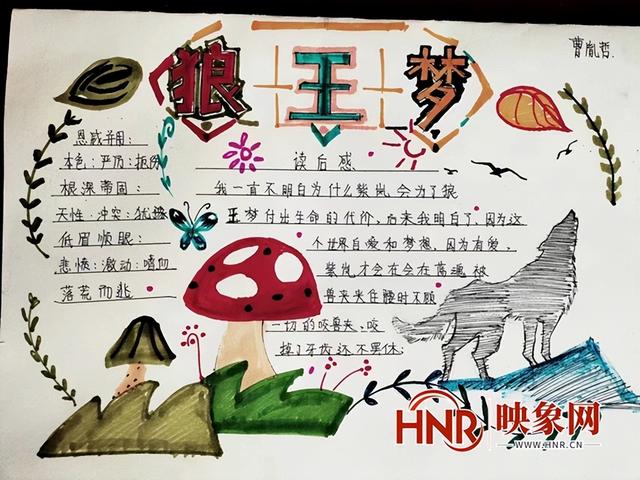 狼王梦
曹胤哲
恩威并用:
本色:严厉:拒份
根深蒂固:
天性·冲突:犹豫
低眉顺眼:
悲愤:激动:嗜血
落荒而逃
读后感
我一直不明白为什么紫岚会为了狼
王梦付出生命的代价,后来我明白了,因为这
个世界自爱和梦想,因为有爱。
紫岚才会在会在高魂被
兽夹夹住腰时不顾
一切的咬兽夹、咬
掉了牙齿还不罢休;
HNR映象网
WWW.HNR.CN